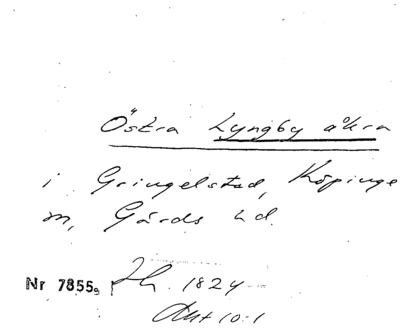 Östra Lyngby åkra
i Gringelstad, Köpinge
m, Gärds hd.
Nr 7855a Jh. 1824
Akt 10:1